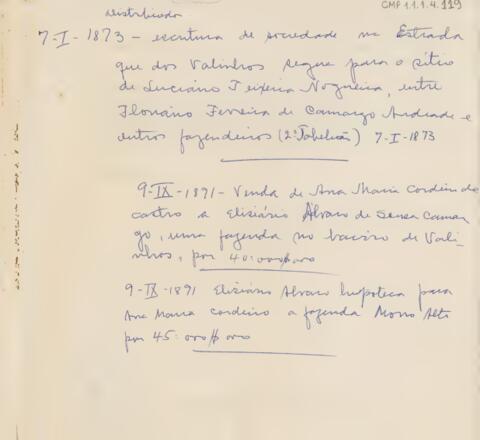 CMP 1.1.1.4.119
Distribuidor
7-I-1873 - escritura de sociedade na Estrada
que dos Valinhos segue para o sítio
de Luciano Teixeira Nogueira, entre
Floriano Ferreira de Camargo Andrade e
outros fazendeiros (2º Tabelião) 7-I-1873
9-IX-1891 - Venda de Ana Maria Cordeiro de
Castro a Elisiário Alvaro de Sousa Camar
go, uma fazenda no bairro de Vali-
nhos, por 40:000$000
9-IX-1891 Elisiário Alvaro hipoteca para
Ana Maria Cordeiro a fazenda Morro Alto
por 45:000$000